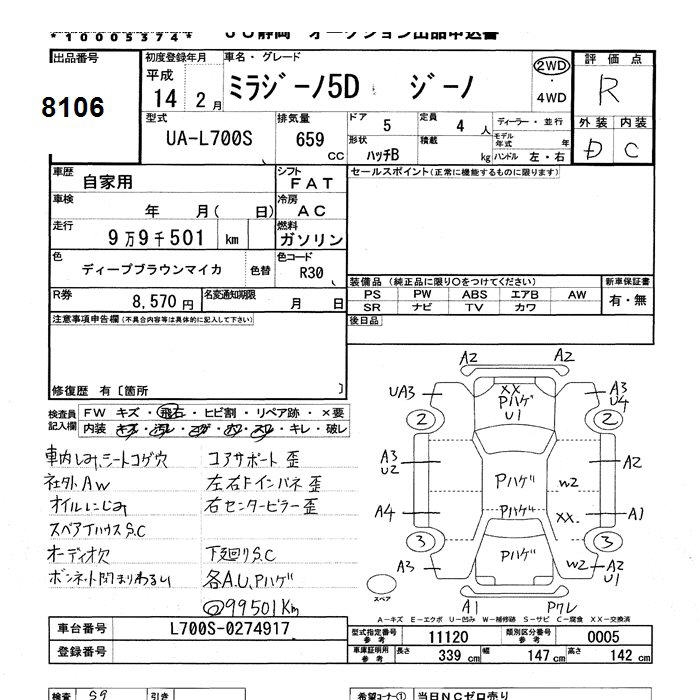 *10005374*
JU静岡 オークション出品申込書
出品番号
8106
初度登録年月
平成
14 2 月
車名・グレード
ミラジーノ5D ジーノ
2WD
・
4WD
評価点
R
外装 内装
D C
型式
UA-L700S
排気量
659
CC
ドア 5
定員 4 人
形状
ハッチB
積載
kg
ディーラー・並行
モデル年式 年
ハンドル 左・右
車歴
自家用
シフト
FAT
車検
年 月( 日)
冷房
AC
走行
9万9千501 km
燃料
ガソリン
色
ディープブラウンマイカ
色替
色コード
R30
R券
8,570 円
名変通知期限
月 日
セールスポイント(正常に機能するものに限ります)
装備品(純正品に限り○をつけてください)
PS PW ABS エアB AW
SR ナビ TV カワ
新車保証書
有・無
後日品
注意事項申告欄(不具合内容等は具体的に記入して下さい)
修復歴 有〔箇所 〕
検査員
記入欄
FW キズ・飛石・ヒビ割・リペア跡・×要
内装 キズ・汚レ・コゲ・穴・スレ・キレ・破レ
車内しみ、シートコゲ穴
社外AW
オイルにじみ
スペアTハウスS.C
オーディオ欠
ボンネット閉まりわるい
コアサポート歪
左右Fインパネ歪
右センターピラー歪
下廻りS.C
各A.U.Pハゲ
◎99501Km
A2 A2
UA3
XX
Pハゲ
U1
A3
U4
2 2
A3
U2
Pハゲ
W2
A2
A4
Pハゲ
XX.
A1
3 3
A3
Pハゲ
W2
A2
U1
スペア
A1 Pワレ
A-キズ E-エクボ U-凹み W-補修跡 S-サビ C-腐食 XX-交換済
車台番号 L700S-0274917
登録番号
型式指定番号
参考
11120
類別区分番号
参考
0005
車庫証明用
参考
長さ 339 cm 幅 147 cm 高さ 142 cm
検査 S9 引き
希望コーナー① 当日NCゼロ売り